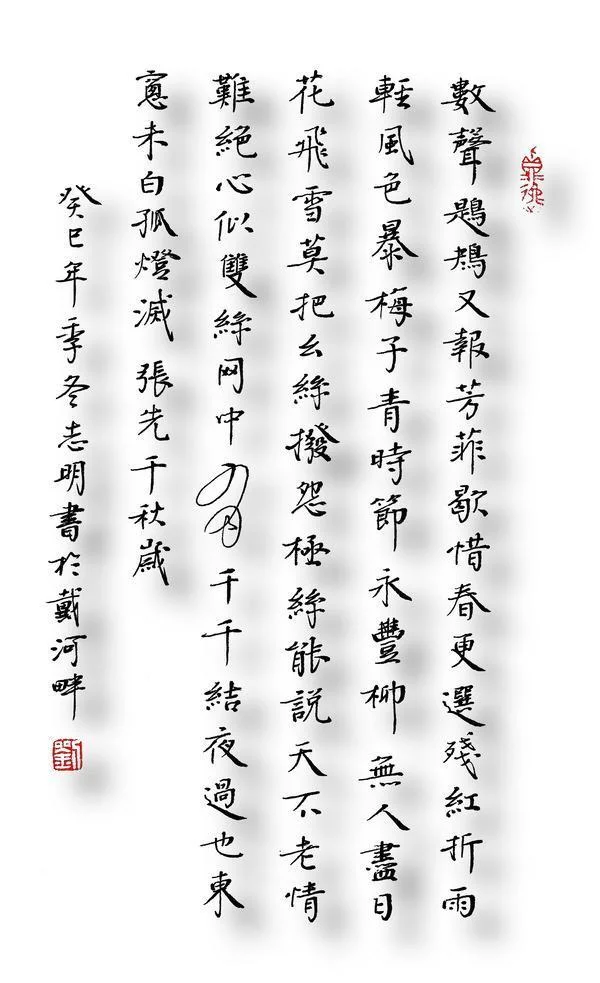 數聲鶗鴂又報芳菲歇惜春更選殘紅折雨
輕風色暴梅子青時節永豐柳無人盡日
花飛雪莫把幺絲撥怨極絲能說天不老情
難絕心似雙絲网中有千千結夜過也東
窻未白孤燈滅 張先千秋歲
癸巳年季冬志明書於戴河畔
劉